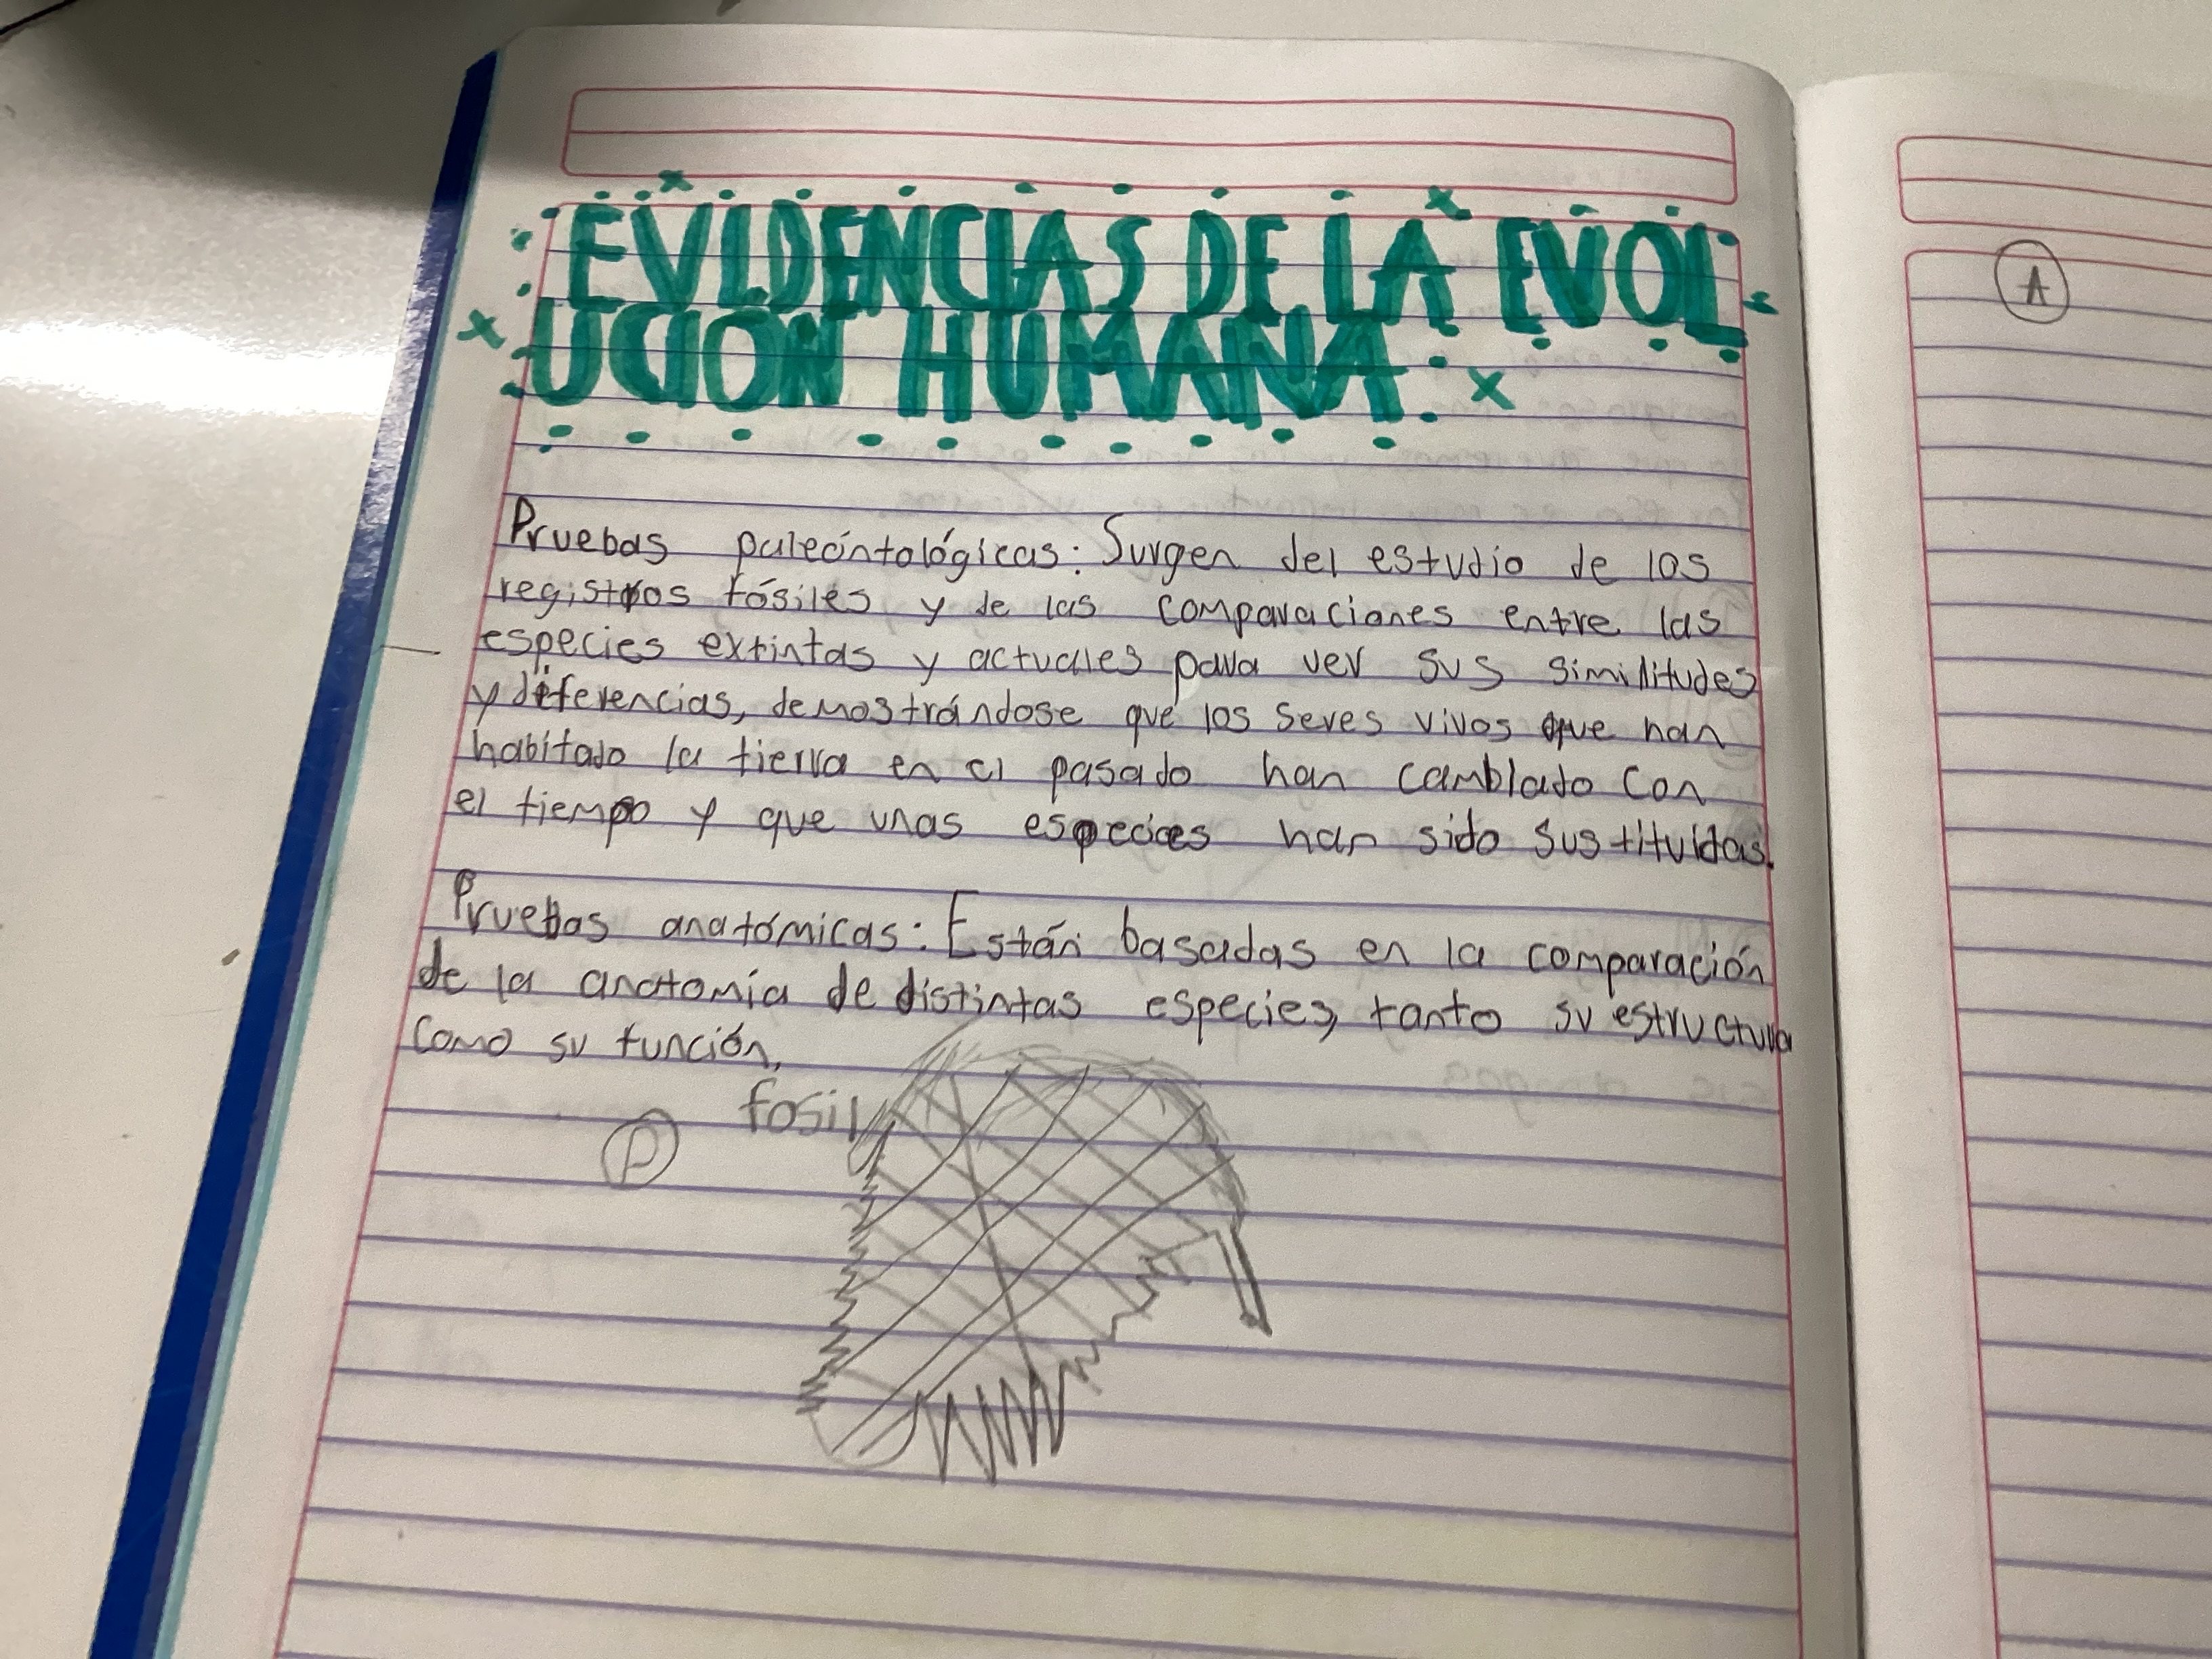 EVIDENCIAS DE LA EVOL-
UCIÓN HUMANA
Pruebas paleóntológicas: Surgen del estudio de los
registros fósiles y de las comparaciones entre las
especies extintas y actuales para ver sus similitudes
y diferencias, demostrándose que los seres vivos que han
habitado la tierra en el pasado han cambiado con
el tiempo y que unas especies han sido sustituidas.
Pruebas anatómicas: Están basadas en la comparación
de la anatomía de distintas especies, tanto su estructura
como su función.
fosil
P
A